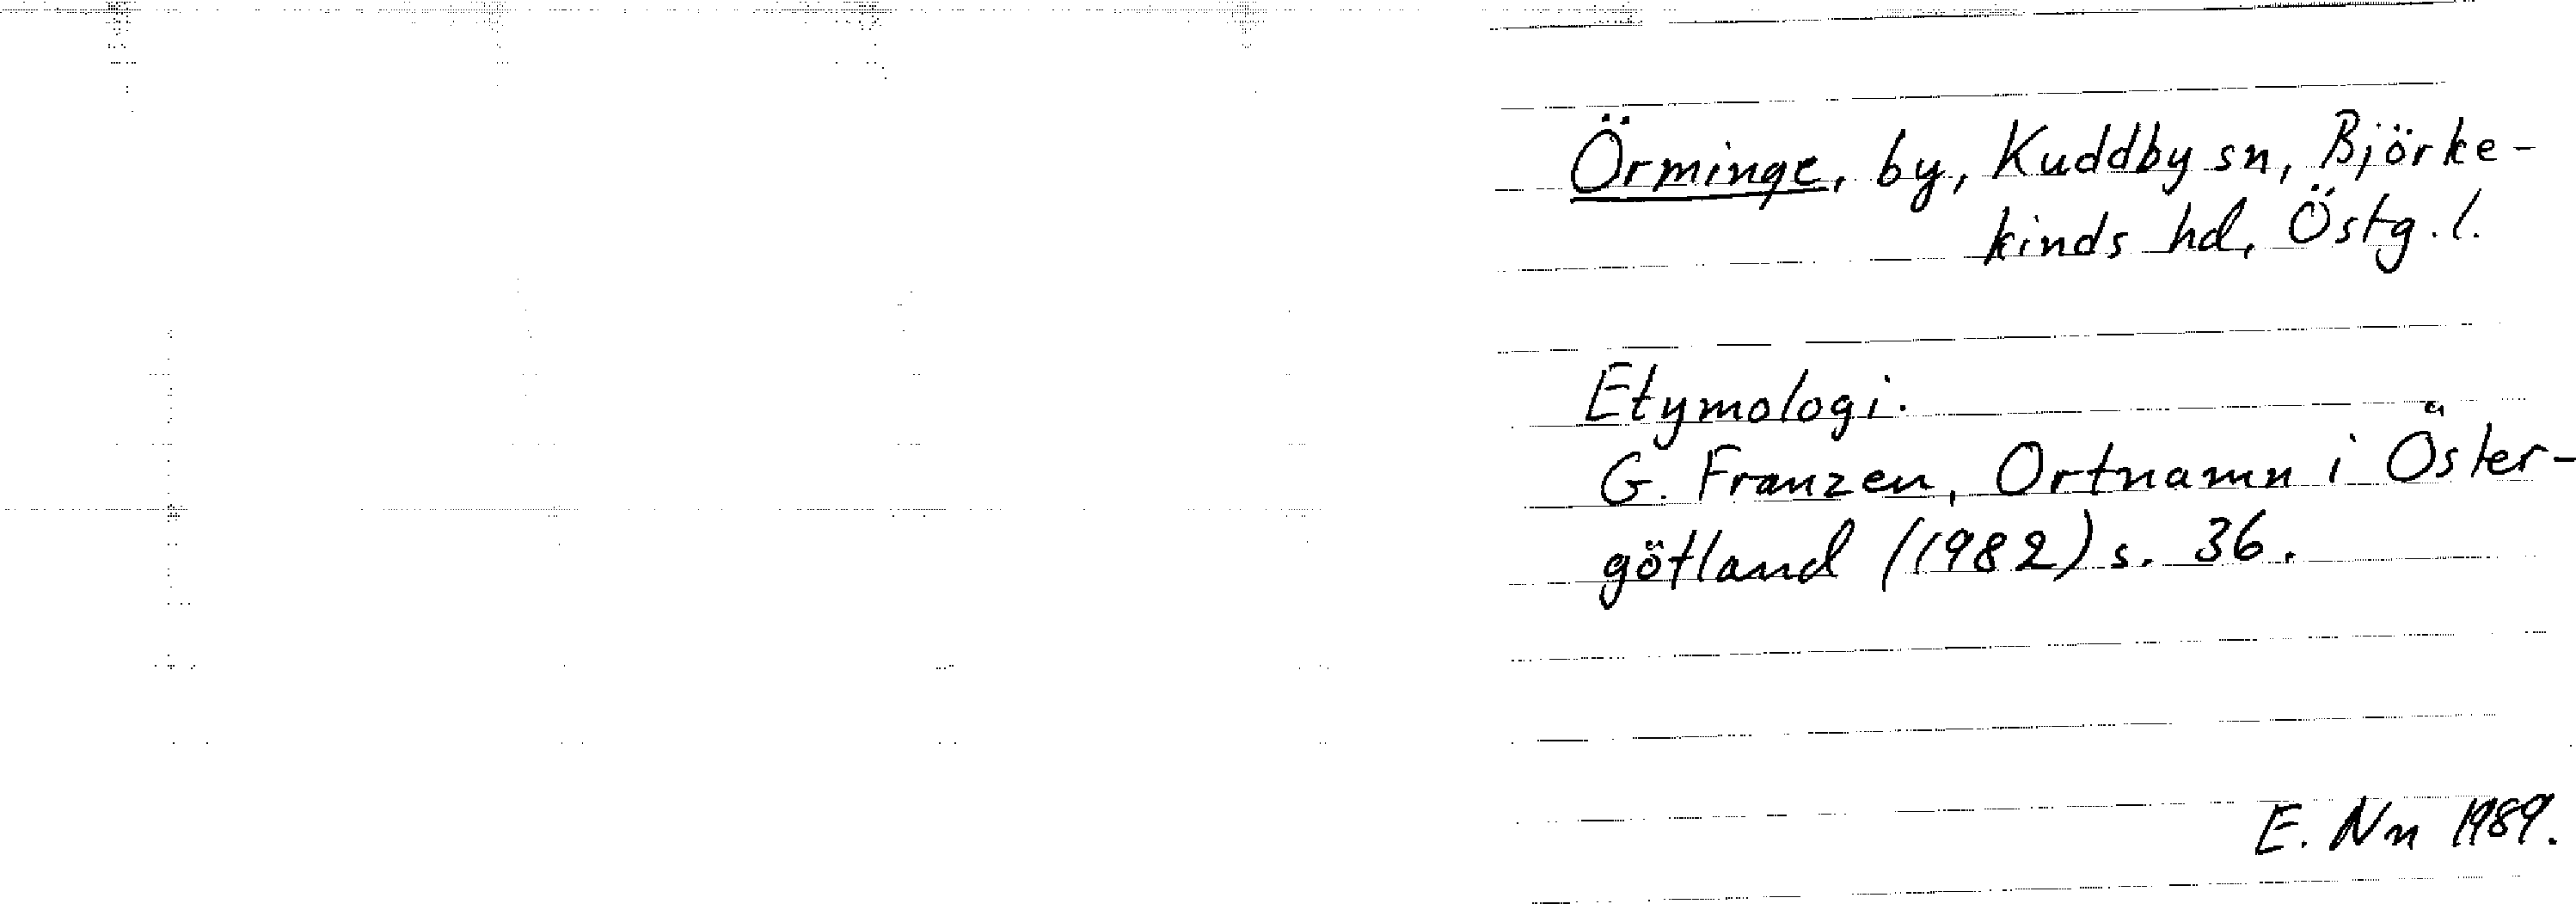 Örminge, by, Kuddby sn, Björke-
kinds hd, Östg.l.
Etymologi.
G. Franzen, Ortnamn i Öster-
götland (1982) s. 36.
E. Nn 1989.